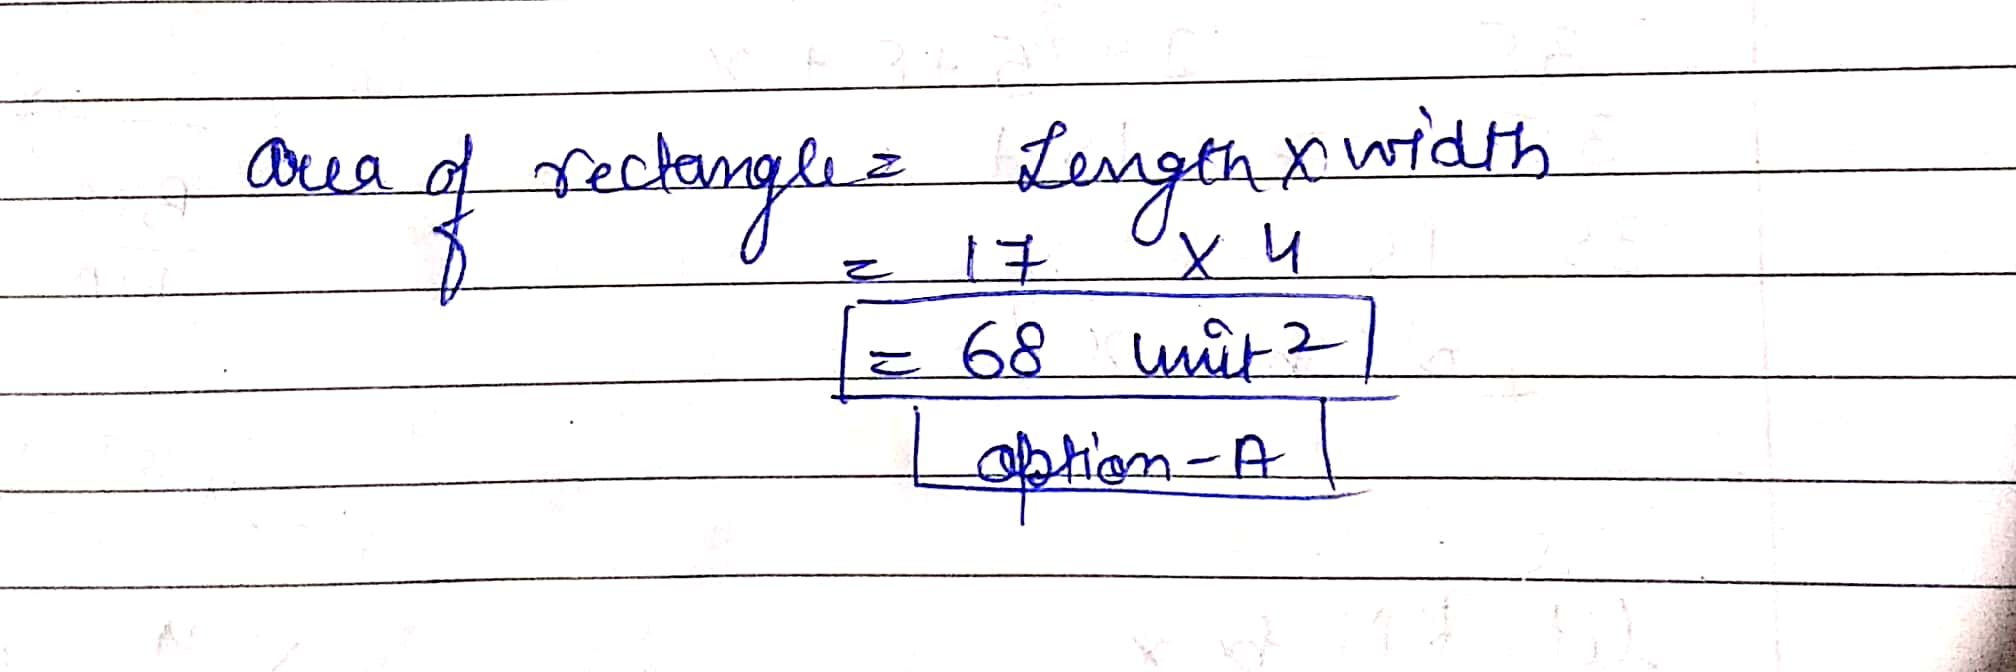 Area of rectangle = Length x width
= 17 x 4
= 68 unit 2
option - A